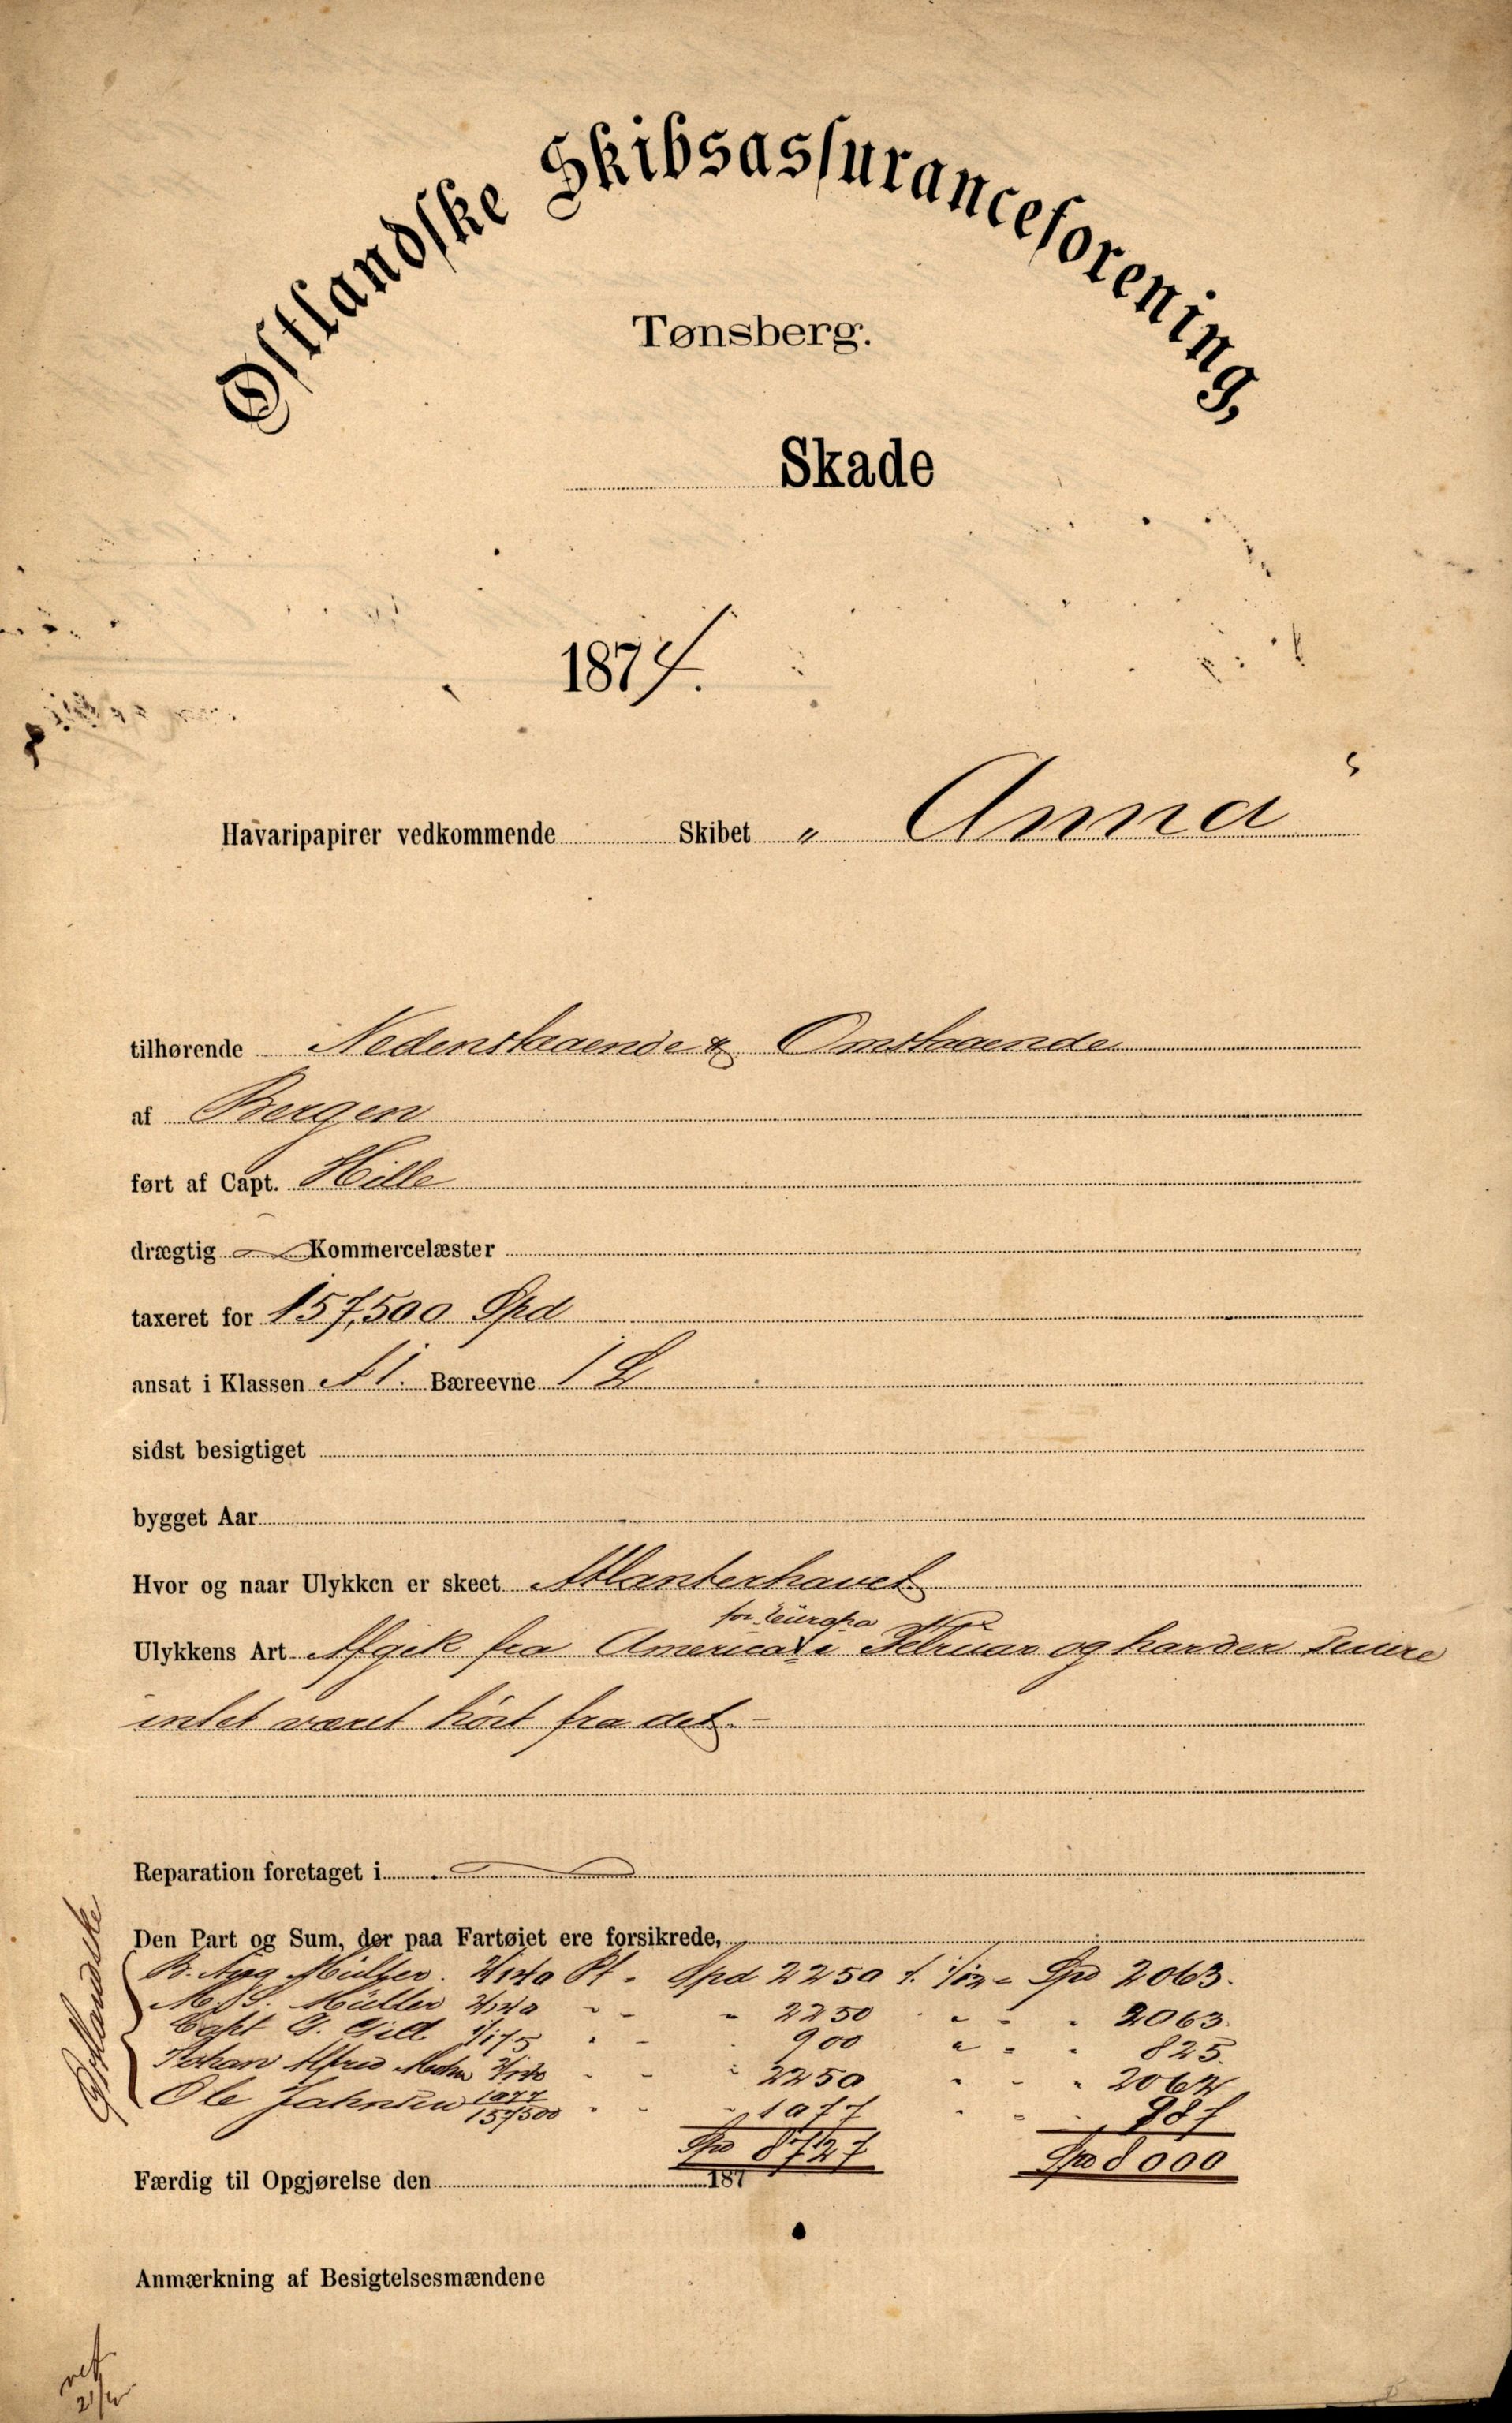 Østlandske Skibsassuranceforening,
Tønsberg.
Skade
1874.
Havaripapirer vedkommende Skibet „ Anna "
tilhørende Nedenstaaende & Omstaaende
af Bergen
ført af Capt. Hille
drægtig — Kommercelæster
taxeret for 157,500 Spd
ansat i Klassen A1. Bæreevne
sidst besigtiget
bygget Aar
Hvor og naar Ulykken er skeet Atlanterhavet
for Europa
Ulykkens Art Afgik fra America i Februar og har der senere
intet været hört fra det. –
Reparation foretaget i
Den Part og Sum, der paa Fartøiet ere forsikrede,
Østlandske
B. Aug Müller. Pt. Spd 2250 Spd 2063.
M. S. Müller " - " 2250 " - " 2063.
Capt G. Gill " - " 900 " - " 825.
Johan Alfred Mohn " - " 2250 " - " 2062
Ole Jahnsen 1077/157500 " - " 1077 " - " 987
Spd 8727 Spd 8000
Færdig til Opgjørelse den 187
Anmærkning af Besigtelsesmændene